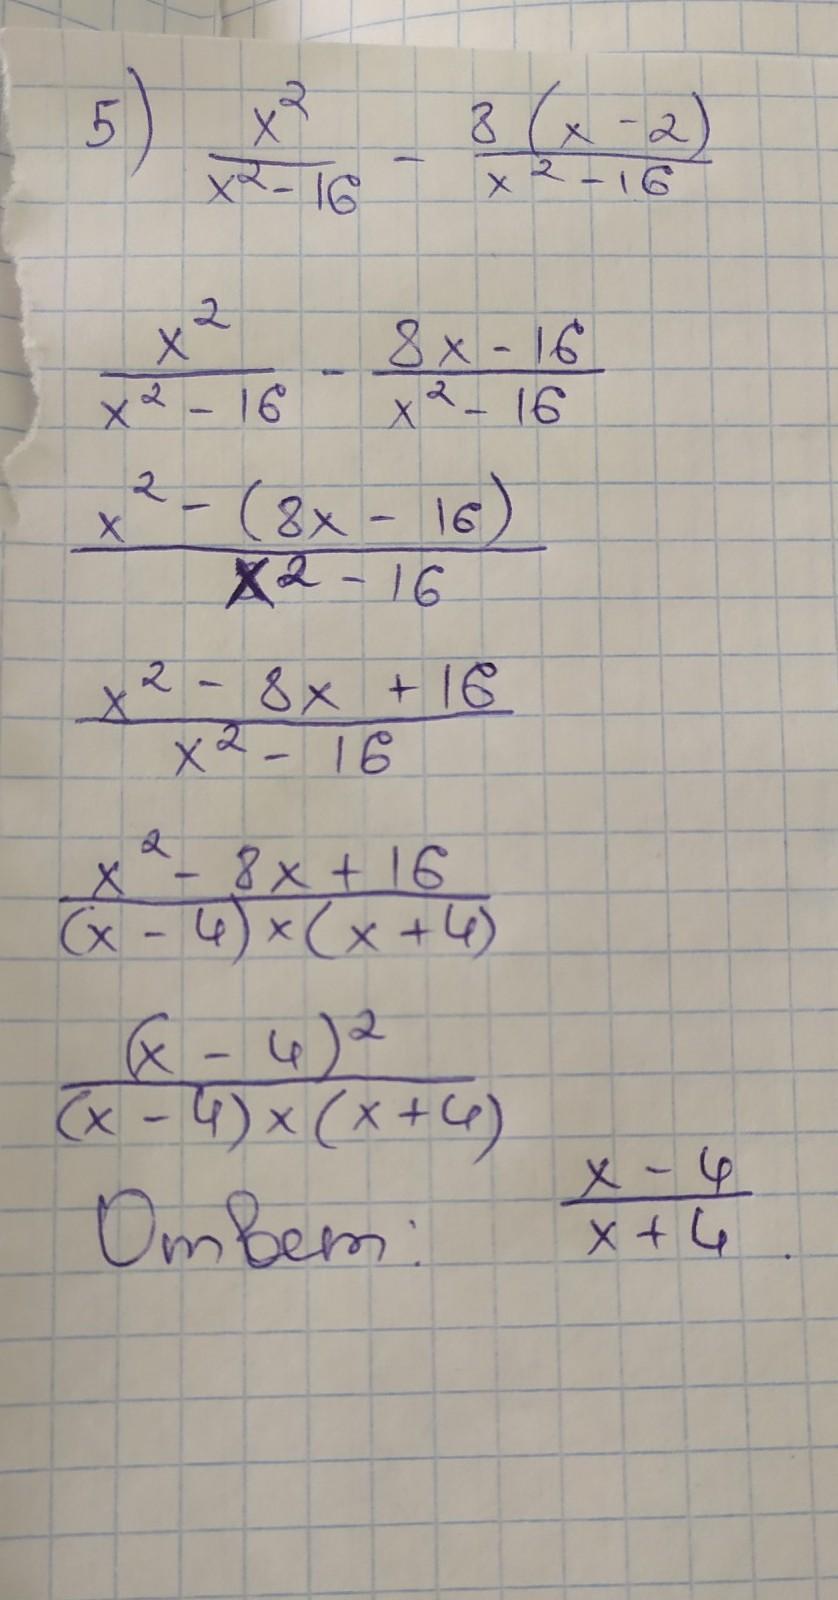 5) x²/(x² - 16) - 8(x - 2)/(x² - 16)
x²/(x² - 16) - (8x - 16)/(x² - 16)
(x² - (8x - 16))/(x² - 16)
(x² - 8x + 16)/(x² - 16)
(x² - 8x + 16)/((x - 4)×(x + 4))
(x - 4)²/((x - 4)×(x + 4))
Ответ: (x - 4)/(x + 4).